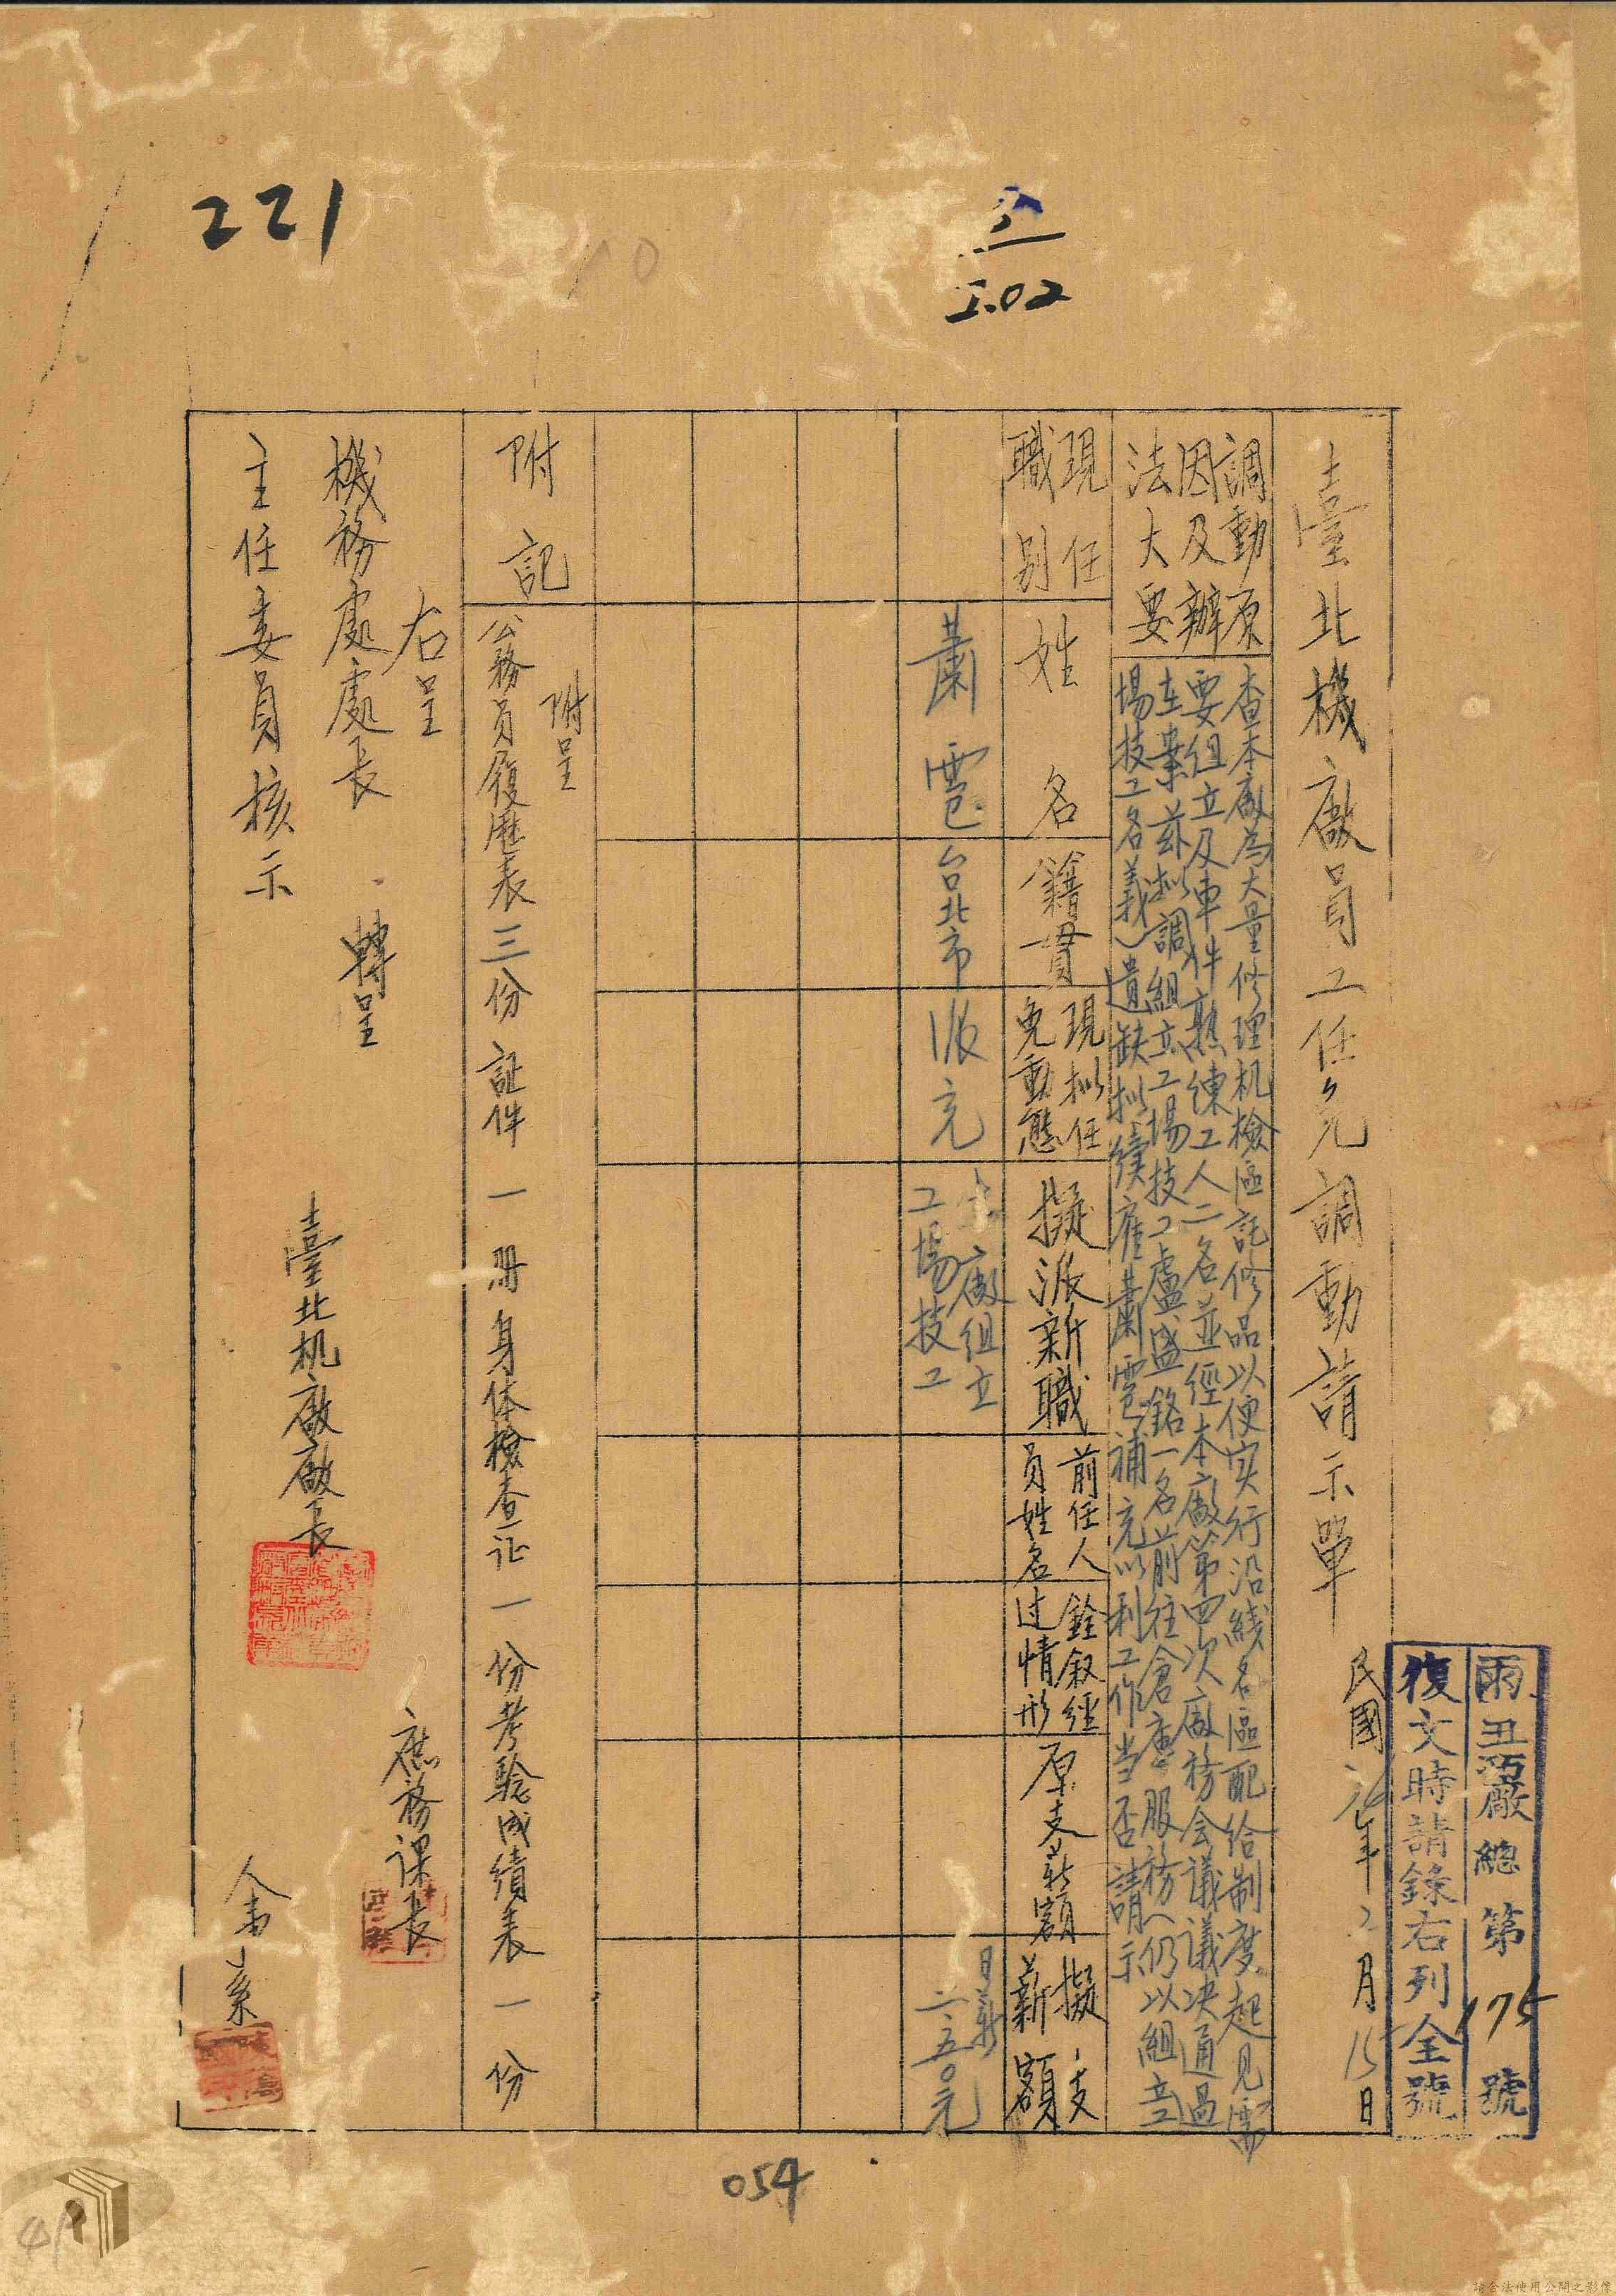 221
I.02
雨丑巧廠總第175號
復文時請錄右列全號
臺北機廠員工任免調動請示單
民國 年2月15日
調動原
因及辦
法大要
查本廠為大量修理机檢區託修品以便实行沿綫各區配給制度起見需
要組立及車件熟練工人二名並經本廠第四次廠務会議議决通過
在案茲拟調組立工場技工盧盛銘一名前往倉庫服務(仍以組立
場技工名義)遺缺拟續雇蕭雹補充以利工作当否請示
現任
職別
姓名
籍貫
現拟任
免動態
擬派新職
前任人
員姓名
銓叙經
过情形
原支薪額
擬支
薪額
蕭雹
台北市
派充
廠組立
工場技工
日薪
二.五〇元
附記
附呈
公務員履歷表三份 証件一册 身体檢查证一份 考驗成績表一份
右呈
機務處處長 轉呈
主任委員核示
臺北机廠廠長
庶務課長
人事系
054
請合法使用公開之影像